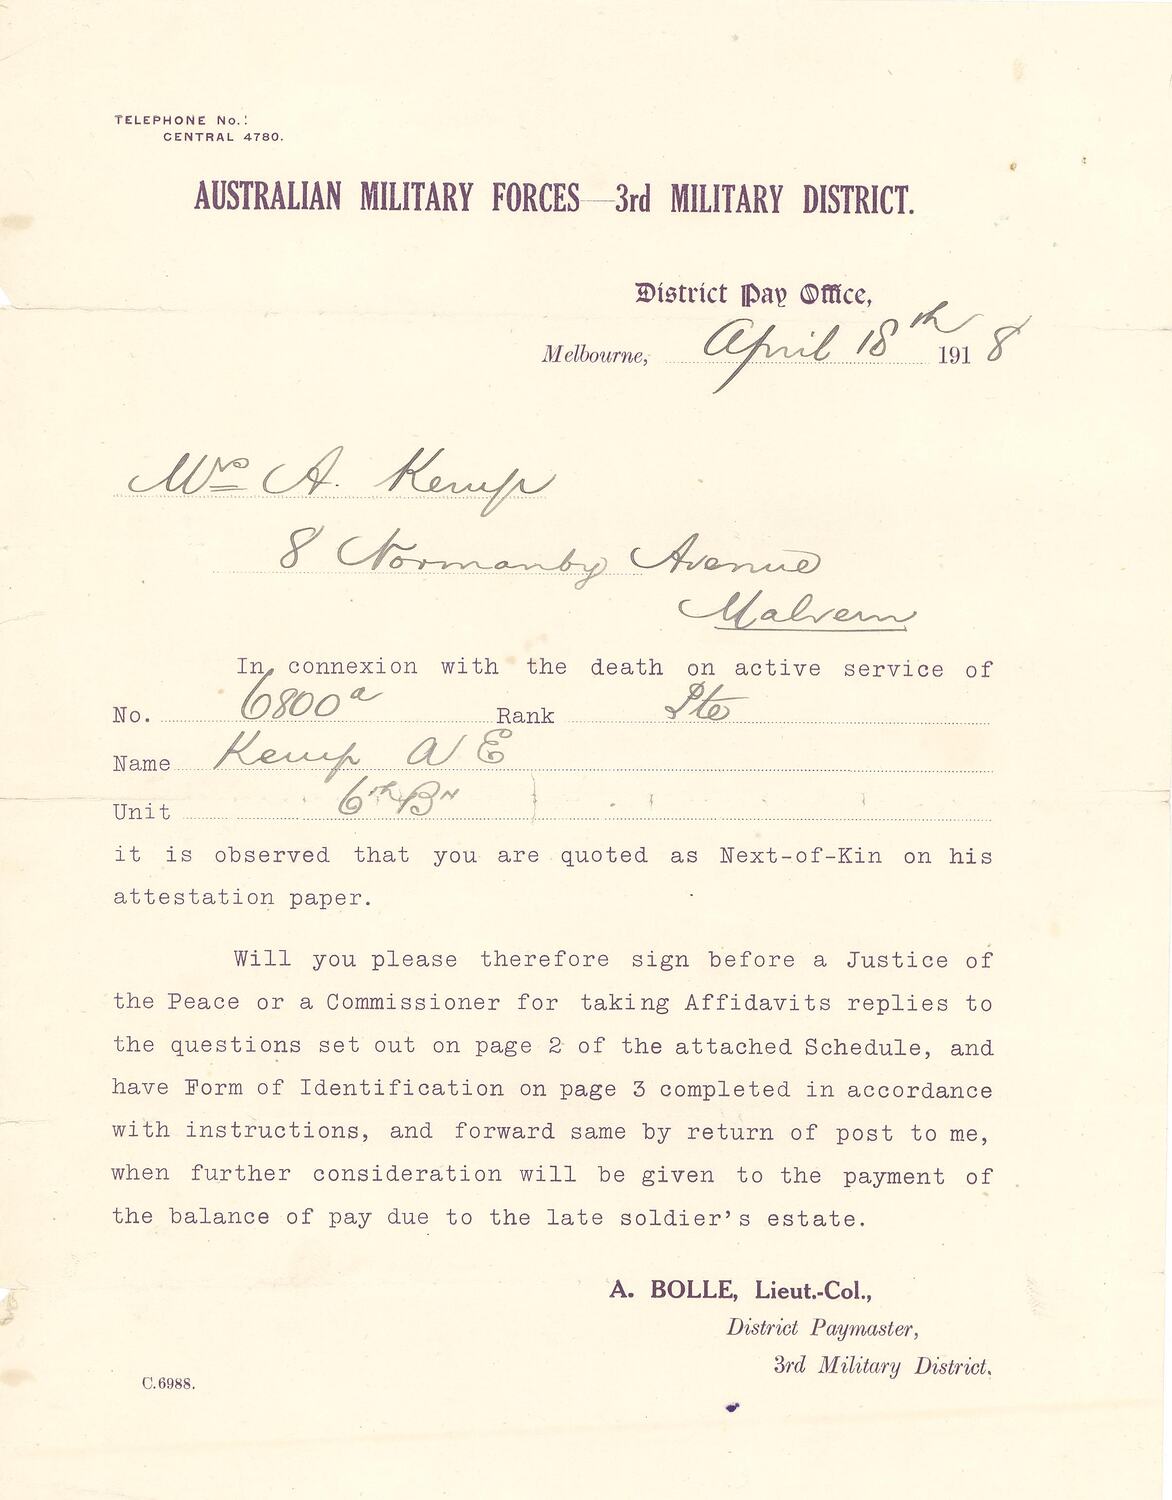 TELEPHONE No.:
CENTRAL 4780.
AUSTRALIAN MILITARY FORCES—3rd MILITARY DISTRICT.
District Pay Office,
Melbourne, April 18th 1918
Mrs A. Kemp
8 Normanby Avenue
Malvern
In connexion with the death on active service of
No. 6800a Rank Pte
Name Kemp A E
Unit 6th Bn
it is observed that you are quoted as Next-of-Kin on his
attestation paper.
Will you please therefore sign before a Justice of
the Peace or a Commissioner for taking Affidavits replies to
the questions set out on page 2 of the attached Schedule, and
have Form of Identification on page 3 completed in accordance
with instructions, and forward same by return of post to me,
when further consideration will be given to the payment of
the balance of pay due to the late soldier's estate.
A. BOLLE, Lieut.-Col.,
District Paymaster,
3rd Military District.
C.6988.